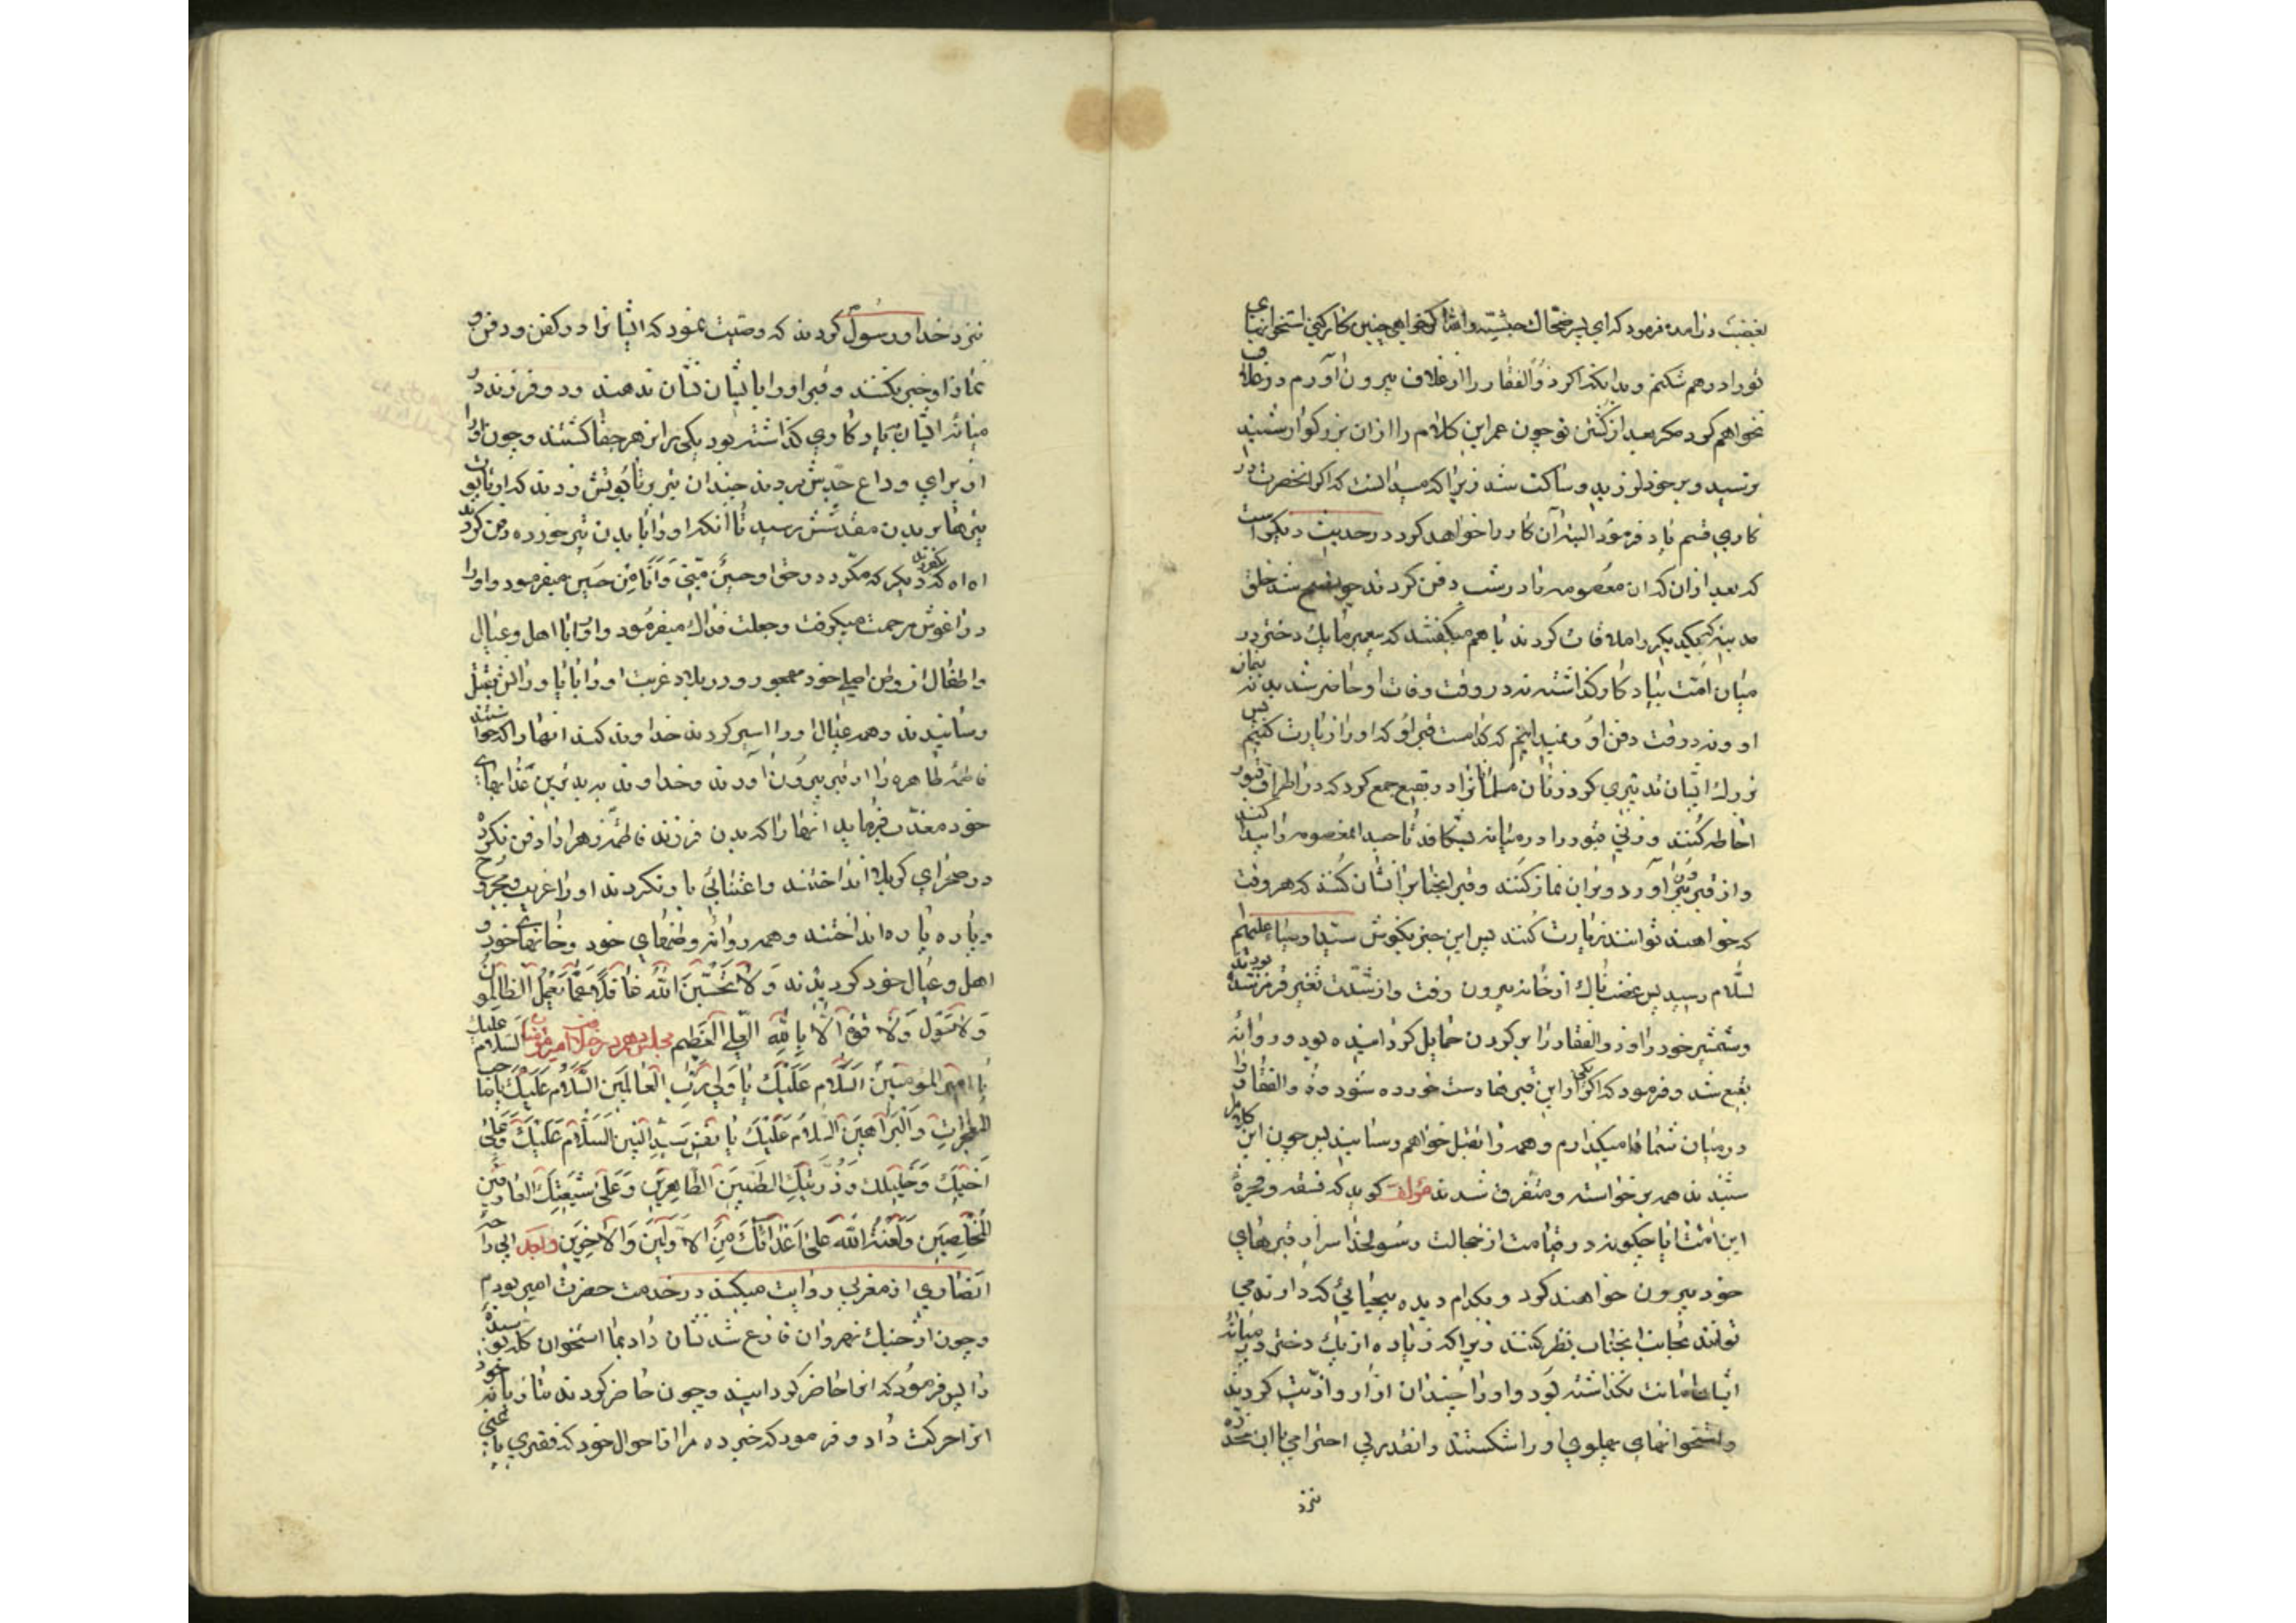 بغضب درآمده فرمود که ای پسر ضحاک حبشیه والله اگر خواهی چنین کار کنی استخوانهای
تو را در هم شکنم و بخدا اگر ذوالفقار را از غلاف بیرون آورم در غلاف
نخواهم کرد مگر بعد از کشتن تو چون عمر این کلام را از ان بزرگوار شنید
ترسید و بر خود لرزید و ساکت شد زیرا که میدانست که اگر انحضرت در
کاری قسم یاد فرمود البته آن کار را خواهد کرد در حدیث دیگر است
که بعد از ان که ان معصومه را در شب دفن کردند چون صبح شد خلق
مدینه که یکدیگر را ملاقات کردند با هم میگفتند که پیغمبر ما یک دختر در
میان امت بیادگار گذاشته نه در وقت وفات او حاضر شدیم نه بنماز
او و نه در وقت دفن او و نمیدانیم که کدامست قبر او که او را زیارت کنیم پس
بزرک ایشان تدبیری کرد زنان مسلمانان را در بقیع جمع کرد که در اطراف قبور
احاطه کنند و زنی قبور را در میانه بشکافد تا جسد ان معصومه را پیدا کنند
و از قبر بیرون آورد و بر ان نماز کنند و قبر انجناب را نشان کنند که هر وقت
که خواهند توانند زیارت کنند پس این خبر بگوش سید اوصیا علیهم
السلام رسید پس غضبناک از خانه بیرون رفت و از شدت تغیر قرمز شده بودند
و شمشیر خود را و ذوالفقار را بر گردن حمایل گردانیده بود و روانه
بقیع شد و فرمود که اگر یکی از این قبرها دست خورده شود ذوالفقار را
در میان شماها میگذارم و همه را بقتل خواهم رسانید پس چون این کلام را
شنیدند همه برخواسته و متفرق شدند مؤلف گوید که فسقه و فجرهٔ
این امت ایا چگونه در قیامت از خجالت رسولخدا سر از قبرهای
خود بیرون خواهند کرد و بکدام دیده بیحیائی که دارند می
توانند بجانب انجناب نظر کنند زیرا که زیاده از یک دختر در میانهٔ
ایشان امانت نگذاشته بود و او را چندان ازار و اذیت کردند
و استخوانهای پهلوی او را شکستند و انقدر بی احترامی با ان
نزد
نزد خدا و رسول کردند که وصیت نمود که ایشانرا در کفن و دفن و
نماز او خبر نکنند و قبر او را بایشان نشان ندهند و دو فرزند در
میانه ایشان بیادگاری گذاشته بود یکی را بزهر جفا کشتند و چون او را
از برای وداع جدش بردند چندان تیر بر تابوتش زدند که از تابوت
تیرها بر بدن مقدسش رسید تا انکه او را با بدن تیر خورده دفن کردند
اه اه که بفرزند دیگر که مکرر در حق او حسین منی و انا من حسین میفرمود و او را
در اغوش مرحمت میگرفت و جعلت فداک میفرمود و او را با اهل و عیال
و اطفال از وطن اصلی خود مهجور و در بلاد غربت او را با یاورانش بقتل
رسانیدند و همه عیال او را اسیر کردند خداوند کند انها را که خواستند
فاطمه طاهره را از قبر بیرون آورند و خداوند به بدترین عذابهای
خود معذب فرماید انها را که بدن فرزند فاطمه زهرا را دفن نکرده
در صحرای کربلا انداختند و اعتنائی باو نکردند او را غریب و مجروح
و پاره پاره انداختند و همه روانه وطنهای خود و خانه‌های خود و
اهل و عیال خود گردیدند وَلا تَحْسَبَنَّ اللهَ غافِلاً عَمّا یَعْمَلُ الظالِمُونَ
وَلا حَوْلَ وَلا قُوَّةَ اِلّا بِاللهِ العَلِیِّ العَظیمِ مجلس دهم در فضایل امیرمؤمنان السلام علیک
یا امیر المؤمنین السَّلامُ عَلَیْکَ یا وَلِیَّ رَبِّ العالَمینَ السَّلامُ عَلَیْکَ یا صاحب
المعجزات وَالبَراهینِ السَّلامُ عَلَیْکَ یا نَفْسَ سَیِّدِ النبیین السَّلامُ عَلَیْکَ وَعَلی
اَخیکَ وَحَلیلَتِکَ وَذُرِّیَّتِکَ الطَیِّبینَ الطّاهِرینَ وَعَلی شیعَتِکَ العارفین
المُخْلِصینَ وَلَعْنَةُ اللهِ عَلی اَعْدائِکَ مِنَ الاَوَّلینَ وَالاخِرینَ
انصاری از مغربی روایت میکند در خدمت حضرت امیر بودم
و چون از جنک نهروان فارغ شد نشان داد بما استخوان کله پوسیدهٔ
را پس فرمود که انرا حاضر گردانید و چون حاضر کردند بتازیانه خود
انرا حرکت داد و فرمود که خبر ده مرا از احوال خود که فقیری یا غنی